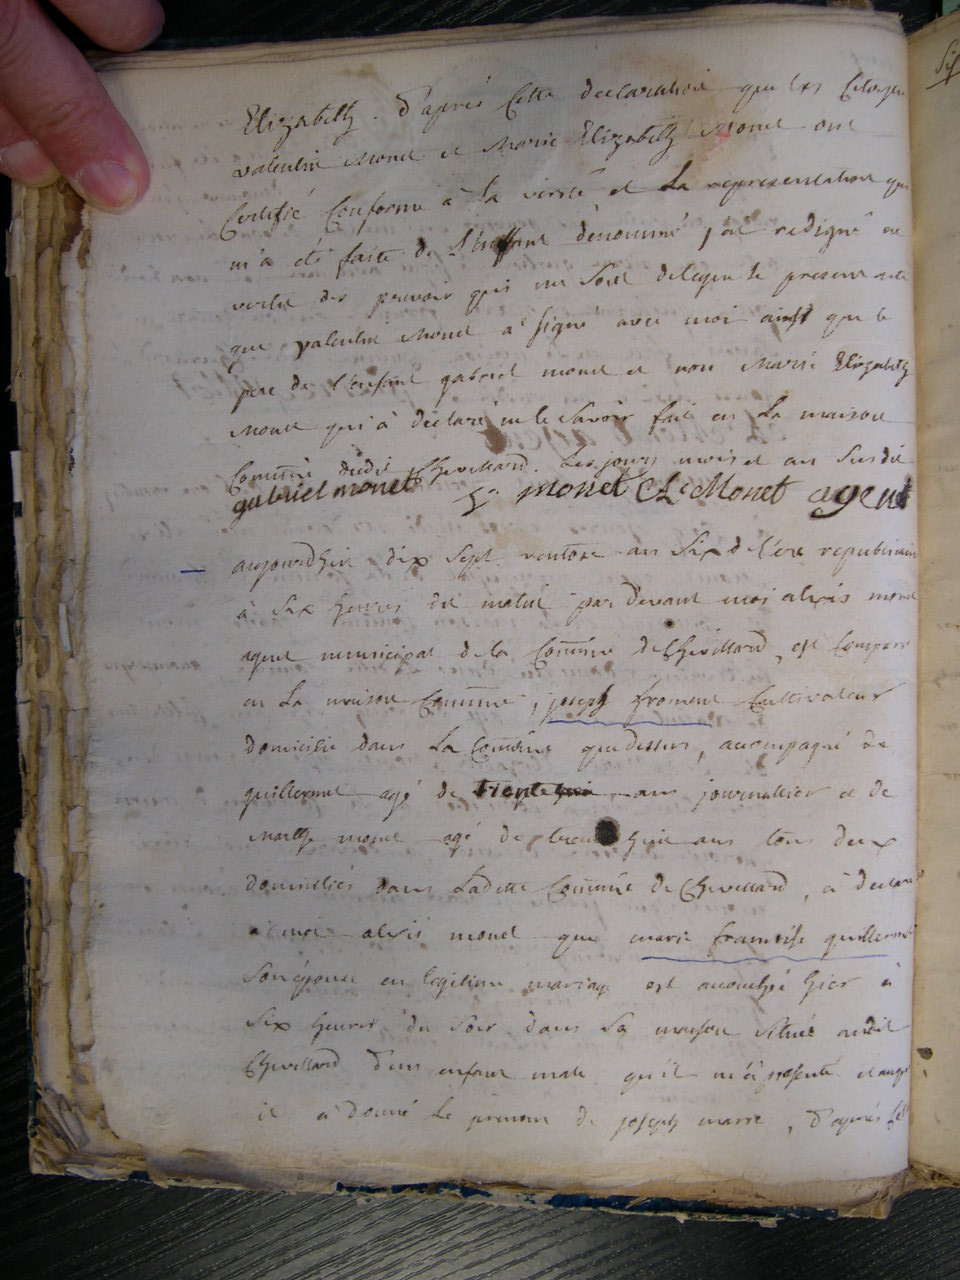 Elizabeth . d'après Cette declaration que les Citoyen
valentin Monet et Marie Elizabeth Monet ont
Certifié Conforme à la verité, et La representation qui
m'a été faite de l'enffant dénommé, j'ai redigné en
vertu des pouvoir qui me sont delegué le present acte
que valentin Monet a signé avec moi ainsi que le
pere de l'enfant gabriel monet et non Marie Elizabeth
Monet qui à declaré ne le savoir fait en La maison
Commune dudit Chevillard. Les jours mois et an susdit
gabriel monet monet Monet agent
aujourdhui dix sept ventose an six d l'ere republicain
à six heures du matin par devant moi alexis monet
agent municipal de la Commune de Chevillard, est Comparu
en La maison Commune, joseph froment Cultivateur
domicilié dans La Commune que dessus, accompagné de
guillermet agé de trente ans journallier et de
Marthe monet agé de huit ans tous deux
domiciliés dans Ladette Commune de Chevillard, à declaré
à moi alexis monet que marie francoise guillermet
son epouse en legitime mariage est accouchée hier à
six heures du soir dans sa maison situé audit
Chevillard d'un enfant male qu'il m'a presenté et auquel
il a donné le prenom de joseph marie, d'aprés